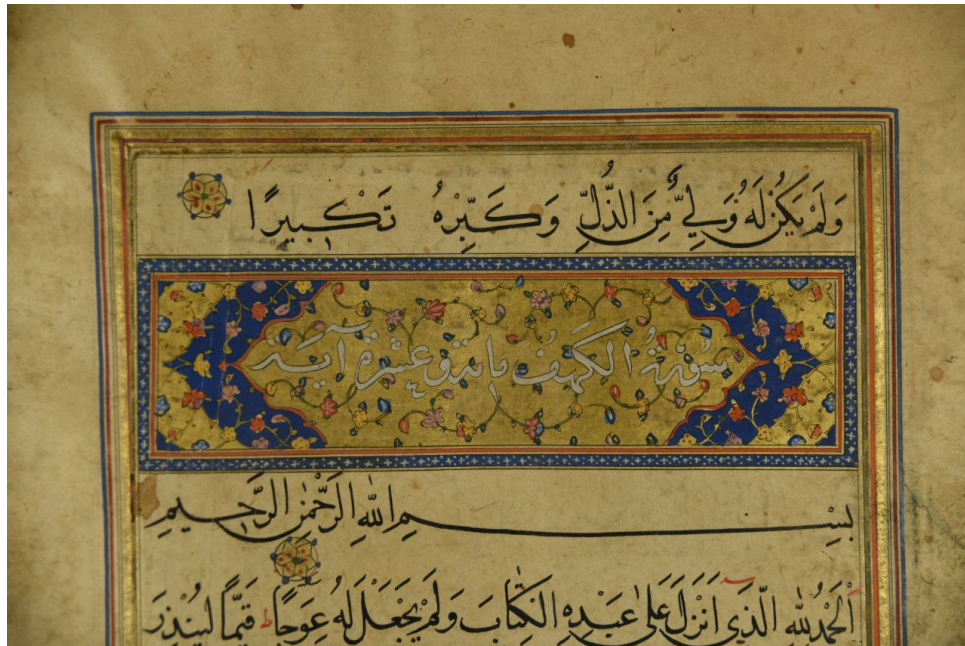 وَلَمْ يَكُنْ لَهُ وَلِيٌّ مِنَ الذُّلِّ وَكَبِّرْهُ تَكْبِيرًا
سورة الكهف مائة وعشرة آية
بِسْمِ اللهِ الرَّحْمٰنِ الرَّحِيمِ
اَلْحَمْدُ لِلّٰهِ الَّذِي اَنْزَلَ عَلٰى عَبْدِهِ الْكِتَابَ وَلَمْ يَجْعَلْ لَهُ عِوَجًا ط قَيِّمًا لِيُنْذِرَ